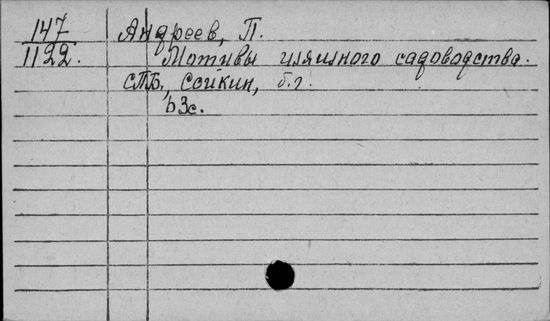 147 Андреев, П.
1122. Мотивы изящного садоводства.
СПБ., Сойкин, б.г.
63с.